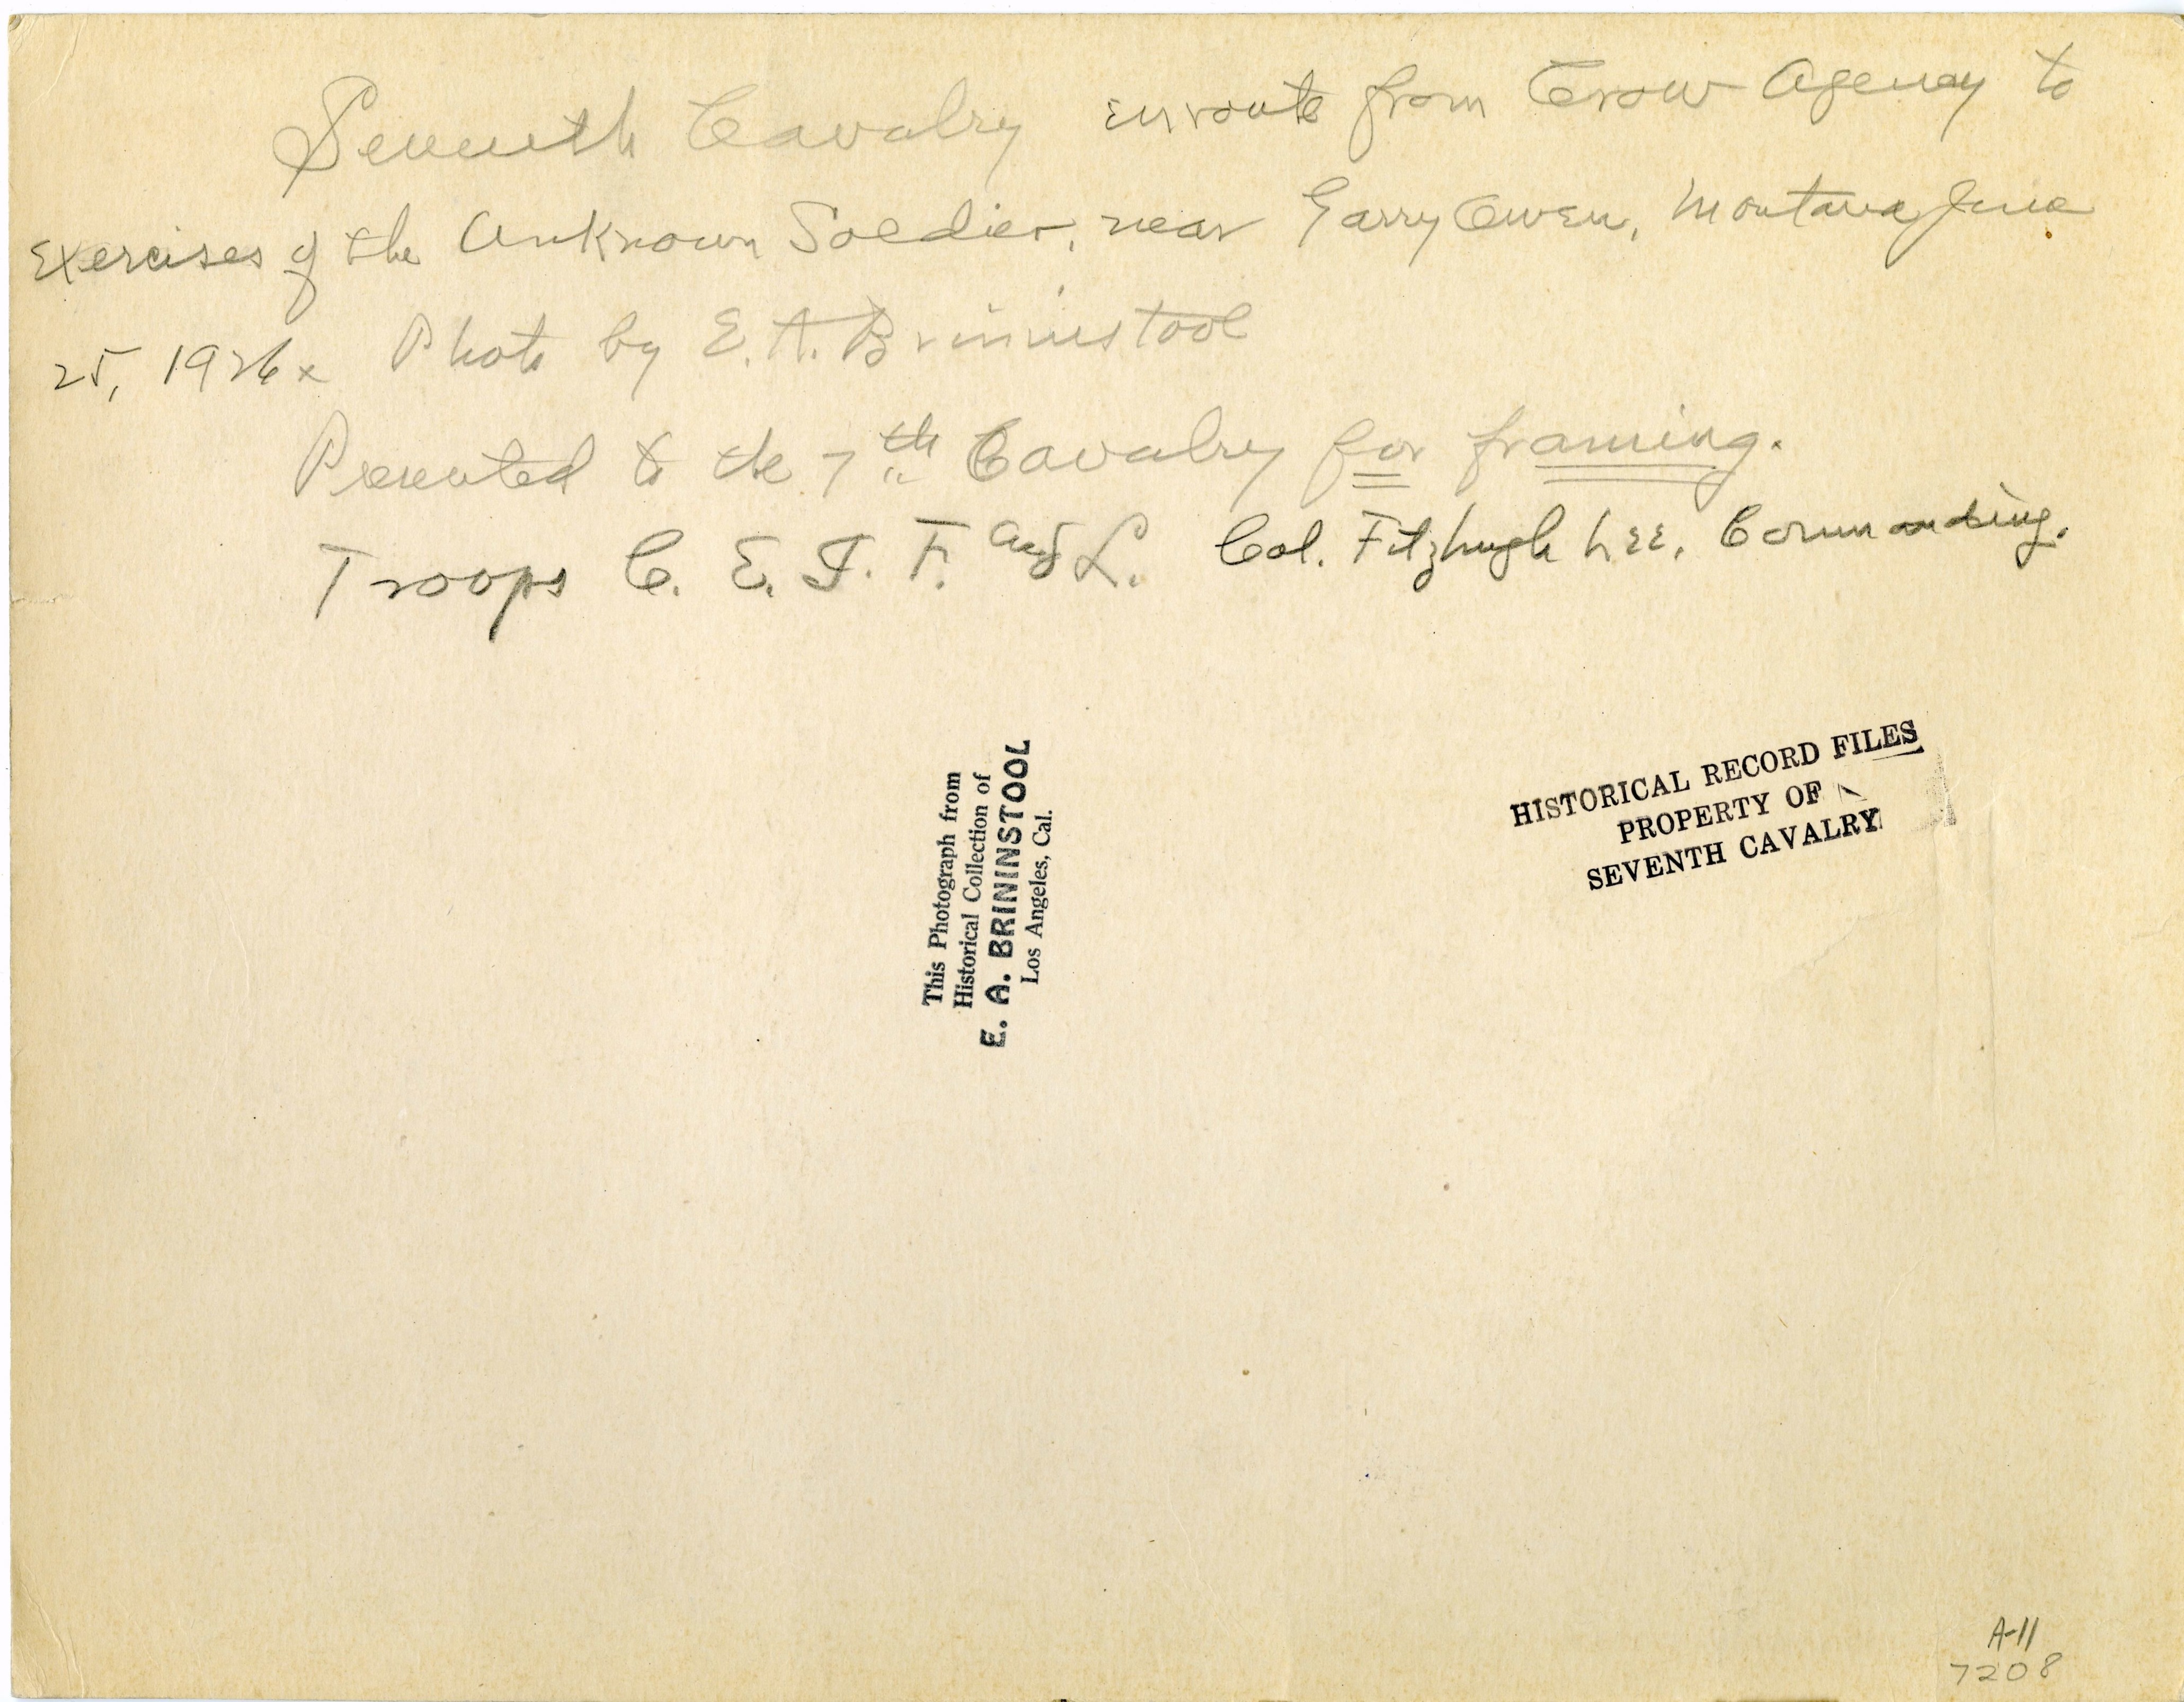 Seventh Cavalry enroute from Crow Agency to
Exercises of the Unknown Soldier, near Garry Owen, Montana June
25, 1926x Photo by E. A. Brininstool
Presented to the 7th Cavalry for framing.
Troops C. E. I. F. and L. Col. Fitzhugh Lee, Commanding.
This Photograph from
Historical Collection of
E. A. BRININSTOOL
Los Angeles, Cal.
HISTORICAL RECORD FILES
PROPERTY OF
SEVENTH CAVALRY
A-11
7208